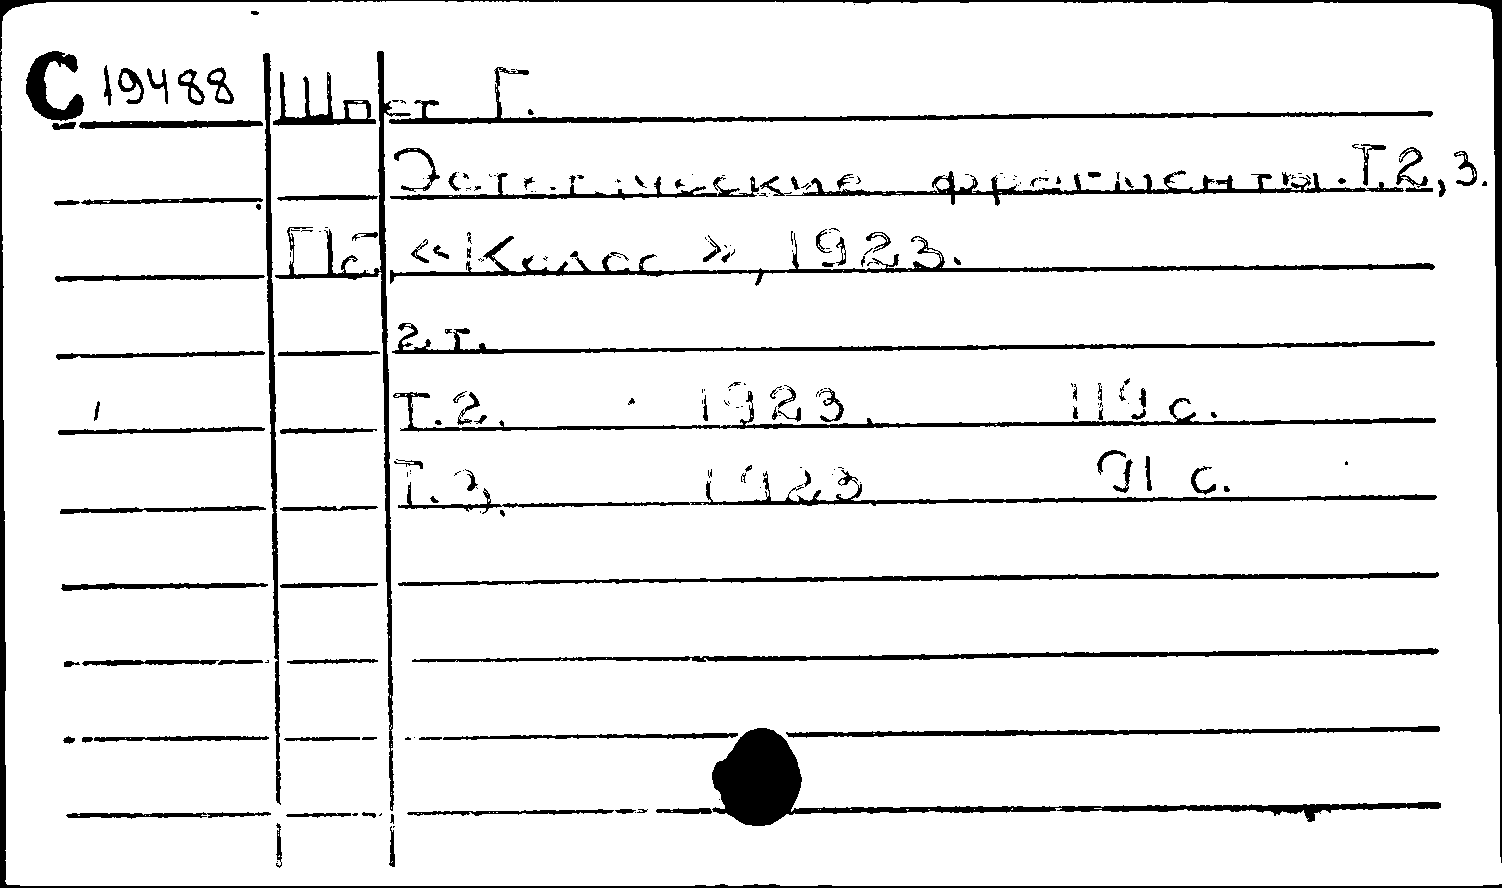 С 19488 Шпет Г.
Эстетические фрагменты. Т.2, 3.
Пб, «Колос», 1923.
2 т.
Т.2. 1923. 119 с.
Т.3. 1923 91 с.